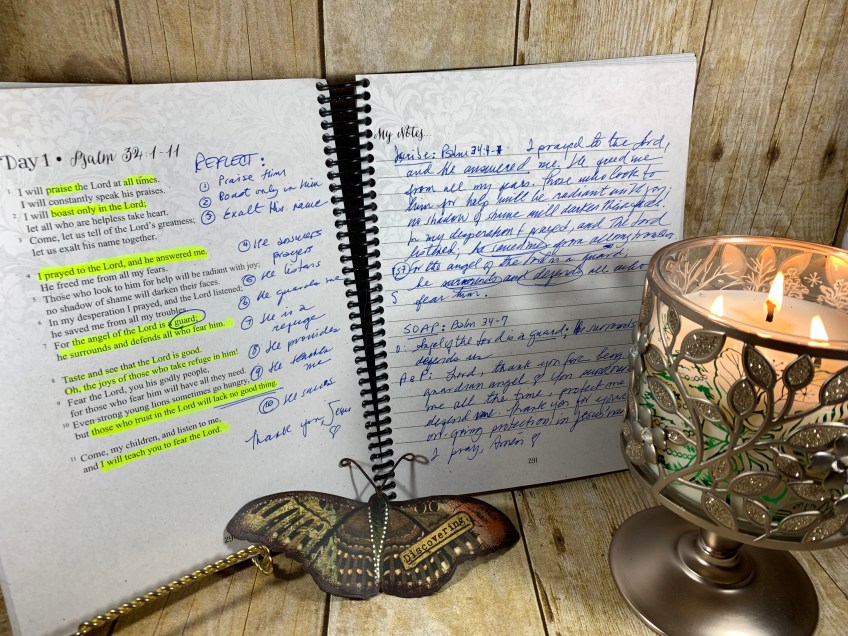 Day 1 • Psalm 34:1-11
1 I will praise the Lord at all times.
I will constantly speak his praises.
2 I will boast only in the Lord;
let all who are helpless take heart.
3 Come, let us tell of the Lord's greatness;
let us exalt his name together.
4 I prayed to the Lord, and he answered me.
He freed me from all my fears.
5 Those who look to him for help will be radiant with joy;
no shadow of shame will darken their faces.
6 In my desperation I prayed, and the Lord listened;
he saved me from all my troubles.
7 For the angel of the Lord is a guard;
he surrounds and defends all who fear him.
8 Taste and see that the Lord is good.
Oh, the joys of those who take refuge in him!
9 Fear the Lord, you his godly people,
for those who fear him will have all they need.
10 Even strong young lions sometimes go hungry,
but those who trust in the Lord will lack no good thing.
11 Come, my children, and listen to me,
and I will teach you to fear the Lord.
REFLECT:
① Praise Him
② Boast only in Him
③ Exalt His name
④ He answers
prayers
⑤ He listens
⑥ He guards me
⑦ He is a
refuge
⑧ He provides
⑨ He teaches
me
⑩ He saves
Thank you, Jesus
29
My Notes...
Write: Psalm 34:4-7 I prayed to the Lord,
and He answered me. He freed me
from all my fears. Those who look to
him for help will be radiant with joy;
no shadow of shame will darken their faces.
In my desperation I prayed, and the Lord
listened; he saved me from all my troubles
For the angel of the Lord is a guard;
he surrounds and defends all who
fear him.
SOAP: Psalm 34:7
O: Angel of the Lord is a guard; He surrounds
defends us
A & P: Lord, thank you for being
guardian angel & You surround
me all the time, protect me
defend me. Thank you for your
on-going protection in Jesus' name
I pray, Amen
291
Discovering.